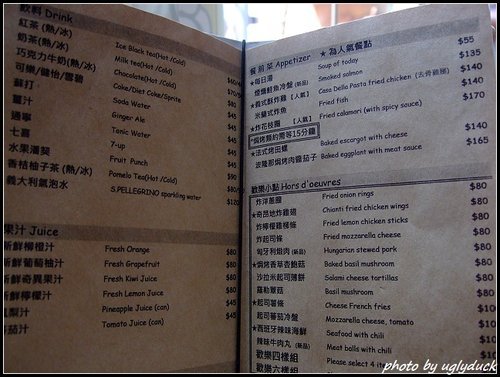 飲料 Drink
紅茶 (熱/冰) Ice Black tea(Hot /Cold)
奶茶(熱/冰) Milk tea(Hot /Cold)
巧克力牛奶(熱/冰) Chocolate(Hot /Cold) $70
可樂/健怡/雪碧 Coke/Diet Coke/Sprite
蘇打 Soda Water
薑汁 Ginger Ale
通寧 Tonic Water
七喜 7-up
水果潘契 Fruit Punch
香桔柚子茶 (熱/冰) Pomelo Tea(Hot /Cold) $80
義大利氣泡水 S.PELLEGRINO sparkling water $120
果汁 Juice
新鮮柳橙汁 Fresh Orange $80
新鮮葡萄柚汁 Fresh Grapefruit $80
新鮮奇異果汁 Fresh Kiwi Juice $80
新鮮檸檬汁 Fresh Lemon Juice $80
鳳梨汁 Pineapple Juice (can) $45
番茄汁 Tomato Juice (can) $45
餐前菜 Appetizer ★ 為人氣餐點
★每日湯 Soup of today $55
煙燻鮭魚冷盤 (新品) Smoked salmon $135
★義式酥炸雞 [人氣] Casa Della Pasta fried chicken (去骨雞腿) $140
米蘭式炸魚 Fried fish $120
★炸花枝圈 [人氣] Fried calamari (with spicy sauce) $170
*焗烤類約需等15分鐘
★法式烤田螺 Baked escargot with cheese $140
波隆那焗烤肉醬茄子 Baked eggplant with meat sauce $165
歡樂小點 Hors d'oeuvres
炸洋蔥圈 Fried onion rings $80
★奇昂地炸雞翅 Chianti fried chicken wings $80
炸檸檬雞柳條 Fried lemon chicken sticks $80
炸起司條 Fried mozzarella cheese $80
匈牙利燉肉 (新品) Hungarian stewed pork $80
★焗烤香草杏鮑菇 Baked basil mushroom $80
沙拉米起司薄餅 Salami cheese tortillas $80
羅勒蘑菇 Basil mushroom $80
★起司薯條 Cheese French fries $80
起司蕃茄冷盤 Mozzarella cheese, tomato $100
★西班牙辣味海鮮 Seafood with chili $100
辣味牛肉丸 (新品) Meat balls with chili $100
歡樂四樣組 Please select 4 ite
歡樂六樣組
photo by uglyduck